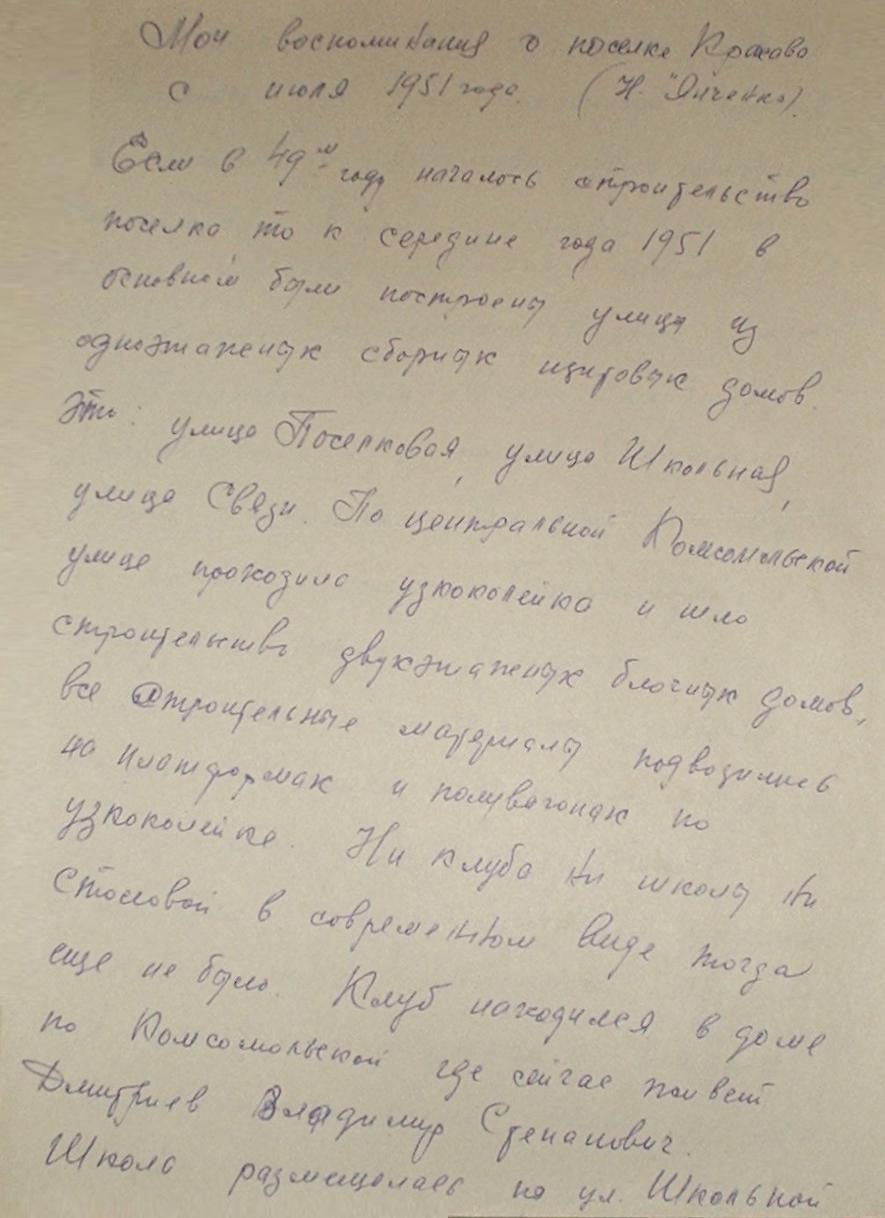 Мои воспоминания о поселке Красава
с июля 1951 года. (Н. Янченко).
Если в 49м году началось строительство
поселка то к середине года 1951 в
основном были построены улицы из
одноэтажных сборных щитовых домов.
Это: улица Поселковая, улица Школьная,
улица Связи. По центральной Комсомольской
улице проходила узкоколейка и шло
строительство двухэтажных блочных домов,
все строительные материалы подвозились
на платформах и полувагонах по
узкоколейке. Ни клуба ни школы ни
столовой в современном виде тогда
еще не было. Клуб находился в доме
по Комсомольской где сейчас живет
Дмитриев Владимир Степанович.
Школа размещалась по ул. Школьной